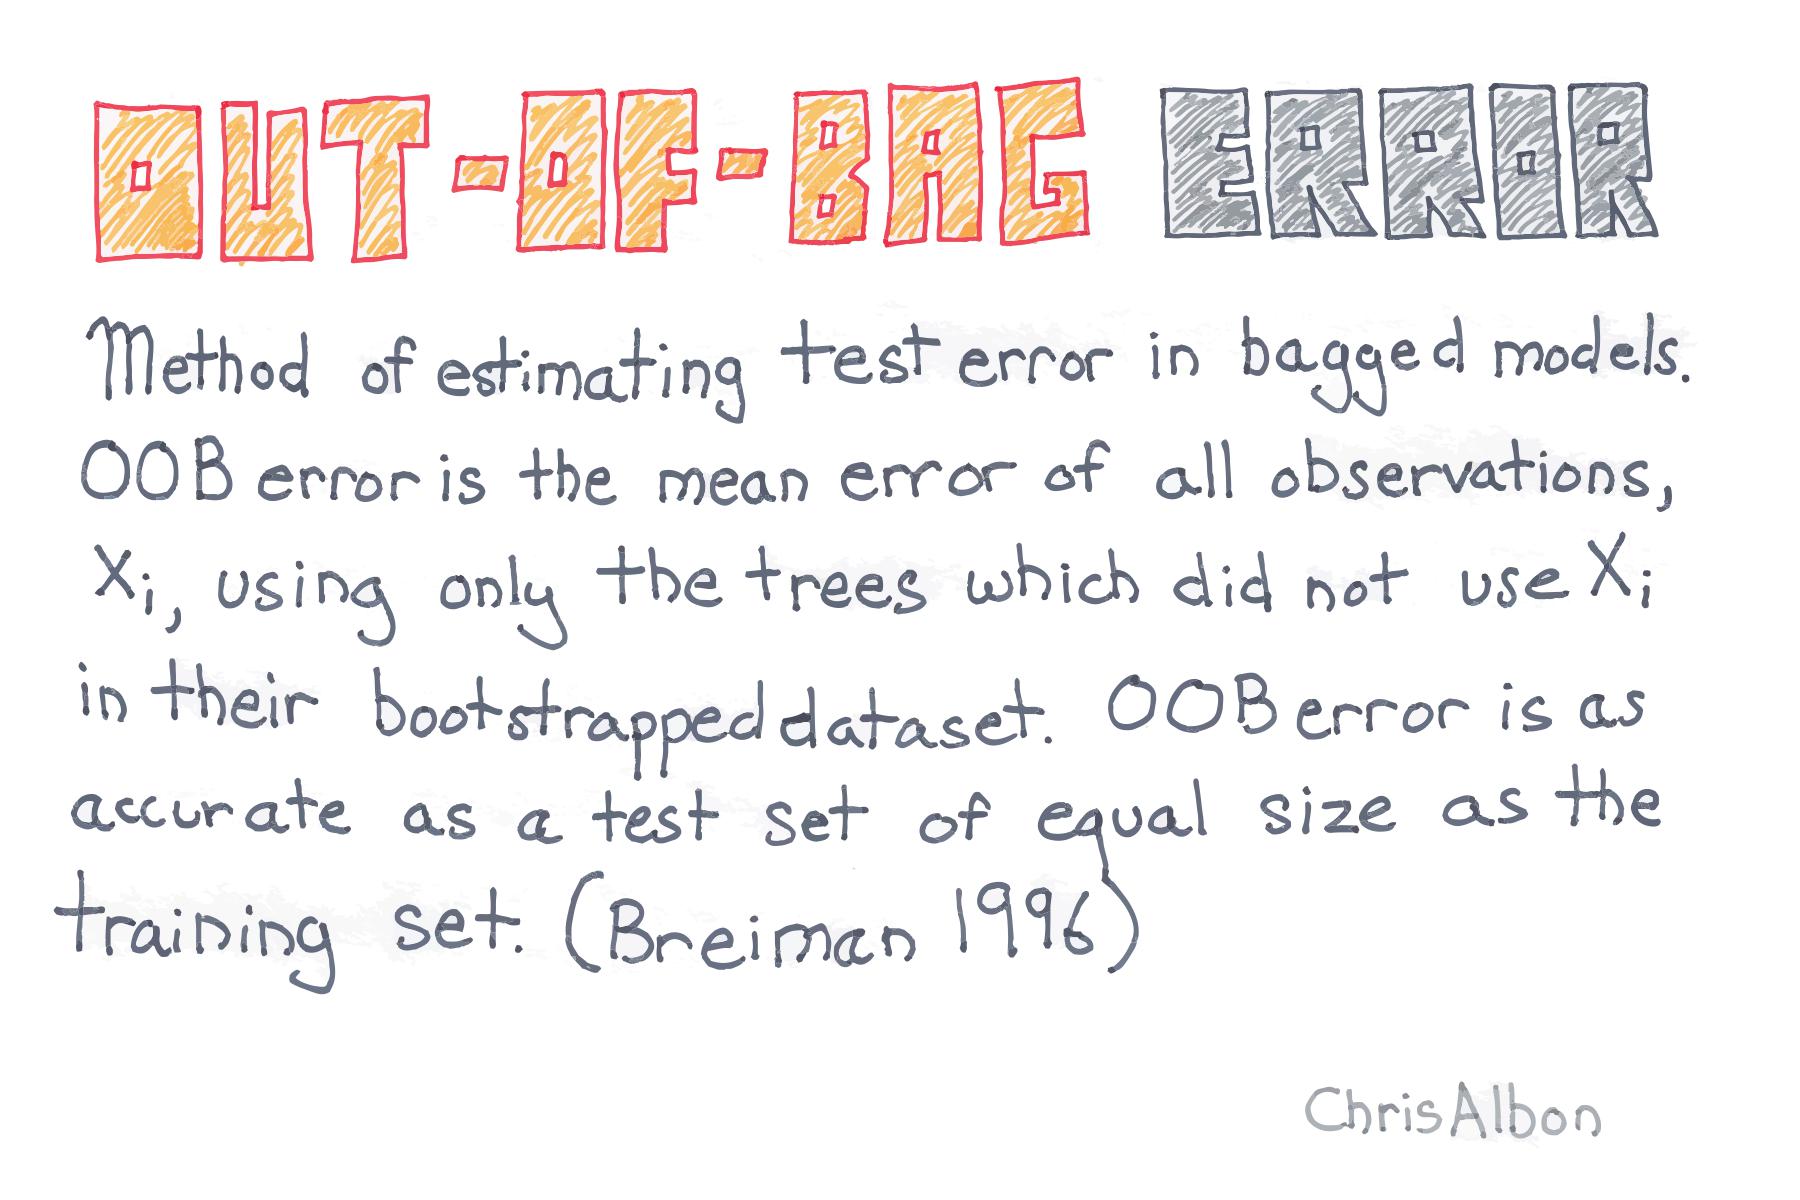 OUT-OF-BAG ERROR
Method of estimating test error in bagged models.
OOB error is the mean error of all observations,
Xi, using only the trees which did not use Xi
in their bootstrapped dataset. OOB error is as
accurate as a test set of equal size as the
training set. (Breiman 1996)
ChrisAlbon